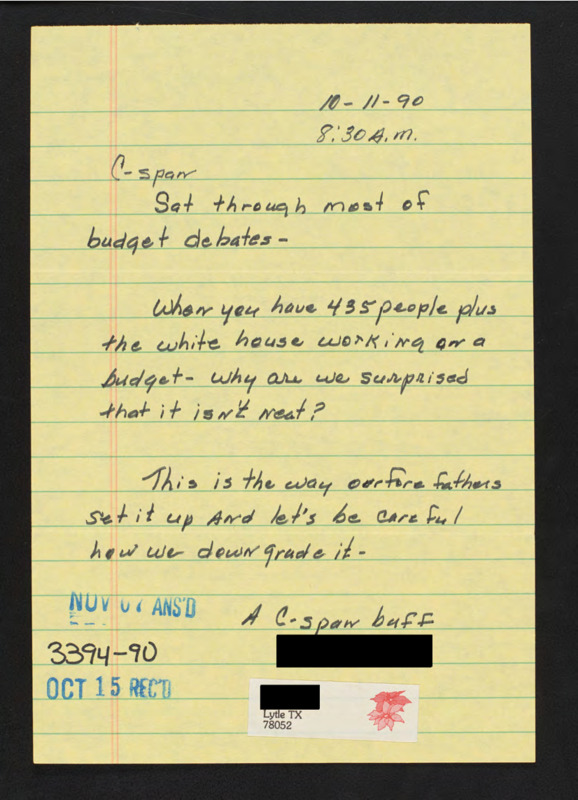 10-11-90
8:30 A.M.
C-span
Sat through most of
budget debates-
When you have 435 people plus
the white house working on a
budget- why are we surprised
that it isn't neat?
This is the way our fore fathers
set it up And let's be careful
how we down grade it-
NOV 07 ANS'D
A C-span buff
3394-90
OCT 15 REC'D
Lytle TX
78052